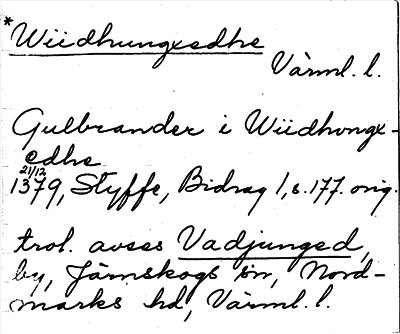 *Wiidhungxedhe
Värml. l.
Gulbrander i Wiidhvngx-
edhe
21/12
1379, Styffe, Bidrag 1, s. 177. orig.
trol. avses Vadjunged,
by, Järnskogs sn, Nord-
marks hd, Värml. l.